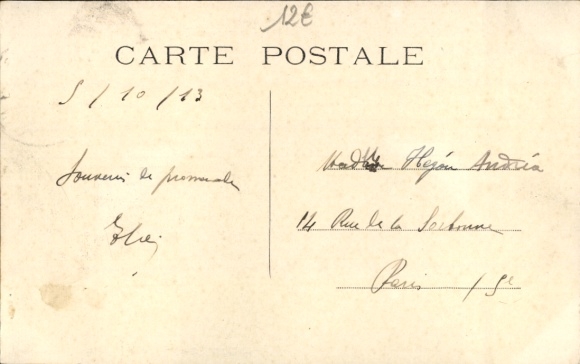 12€
CARTE POSTALE
5/10/13
Souvenir de promenade
Hejón Andréa
14 Rue de la Sorbonne
Paris / 5e